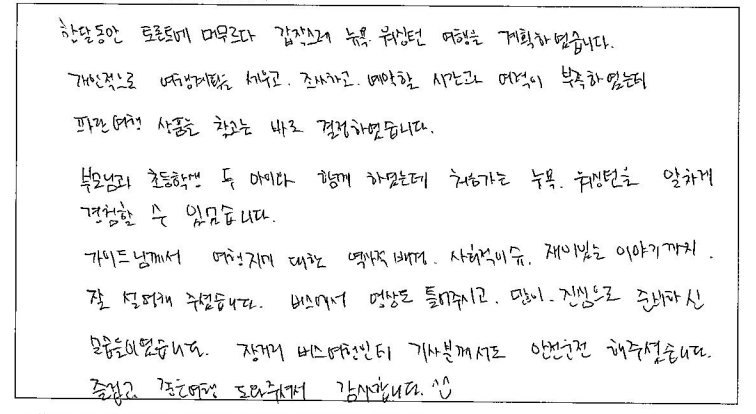 한달동안 토론토에 머무르다 갑작스레 뉴욕. 워싱턴 여행을 계획하였습니다.
개인적으로 여행계획을 세우고. 조사하고. 예약할 시간과 여력이 부족하였는데
파란여행 상품을 찾고는 바로 결정하였습니다.
부모님과 초등학생 두 아이와 함께 하였는데 처음가는 뉴욕. 워싱턴을 알차게
경험할 수 있었습니다.
가이드님께서 여행지에 대한 역사적 배경. 사회적이슈. 재미있는 이야기까지.
잘 설명해 주셨습니다. 버스에서 영상도 틀어주시고. 많이. 진심으로 준비하신
모습들이었습니다. 장거리 버스여행인데 기사분께서도 안전운전 해주셨습니다.
즐겁고 좋은여행 도와주셔서 감사합니다. ^^